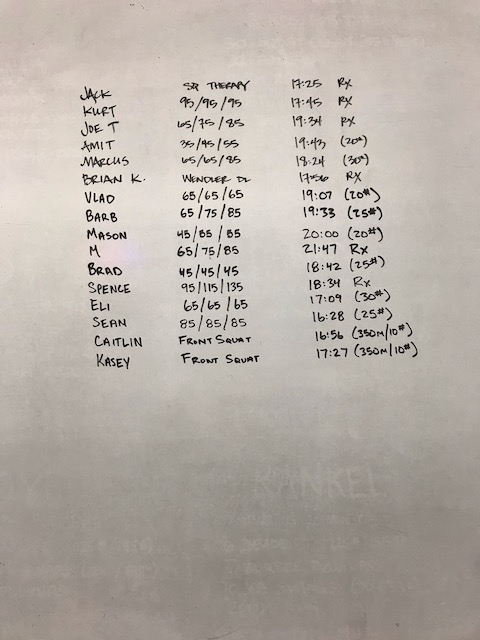 JACK SQ THERAPY 17:25 RX
KURT 95/95/95 17:45 RX
JOE T 65/75/85 19:34 RX
AMIT 35/45/55 19:43 (20#)
MARCUS 65/65/85 18:24 (30#)
BRIAN K. WENDLER DL 17:56 RX
VLAD 65/65/65 19:07 (20#)
BARB 65/75/85 19:33 (25#)
MASON 45/55/55 20:00 (20#)
M 65/75/85 21:47 RX
BRAD 45/45/45 18:42 (25#)
SPENCE 95/115/135 18:34 RX
ELI 65/65/65 17:09 (30#)
SEAN 85/85/85 16:28 (25#)
CAITLIN FRONT SQUAT 16:56 (350M/10#)
KASEY FRONT SQUAT 17:27 (350M/10#)
RANKEL